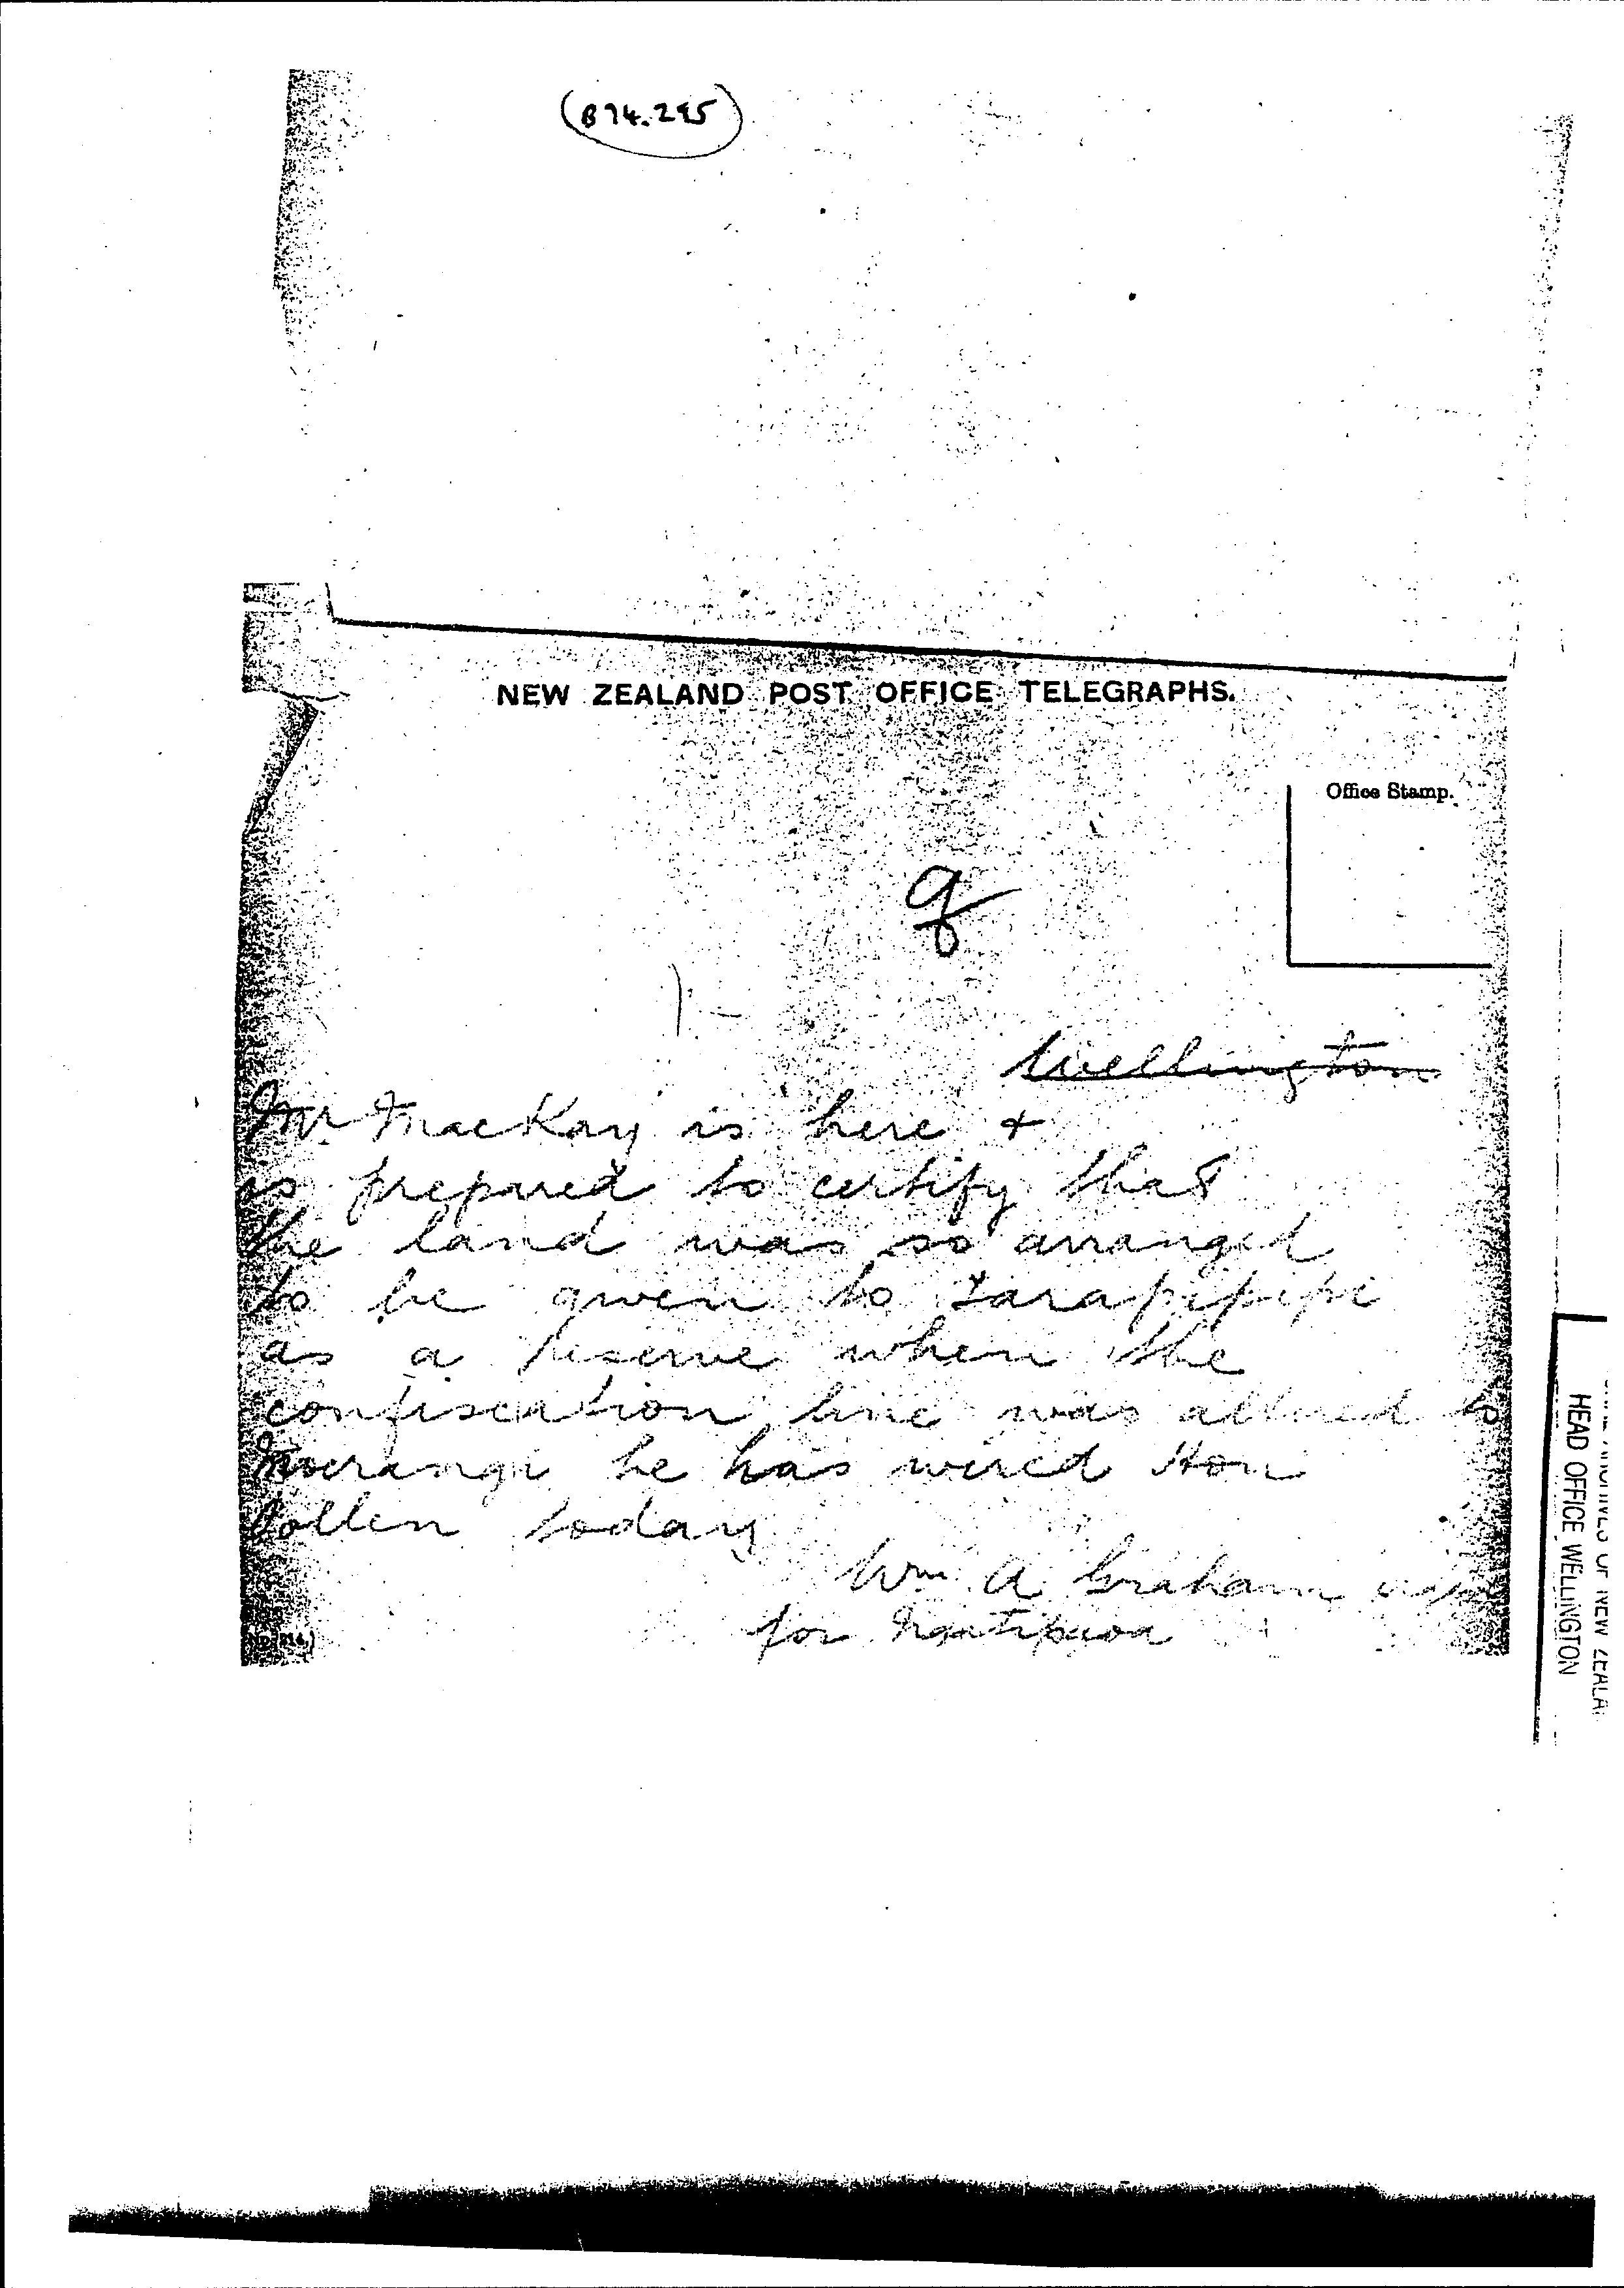 (B74.295)
NEW ZEALAND POST OFFICE TELEGRAPHS.
Office Stamp.
Wellington
Mr MacKay is here +
is prepared to certify that
the land was so arranged
to be given to Tarapipipi
as a reserve when the
confiscation line was altered to
he has wired Hon
Pollen today
Wm A Graham
for Ngatipaoa
HEAD OFFICE WELLINGTON